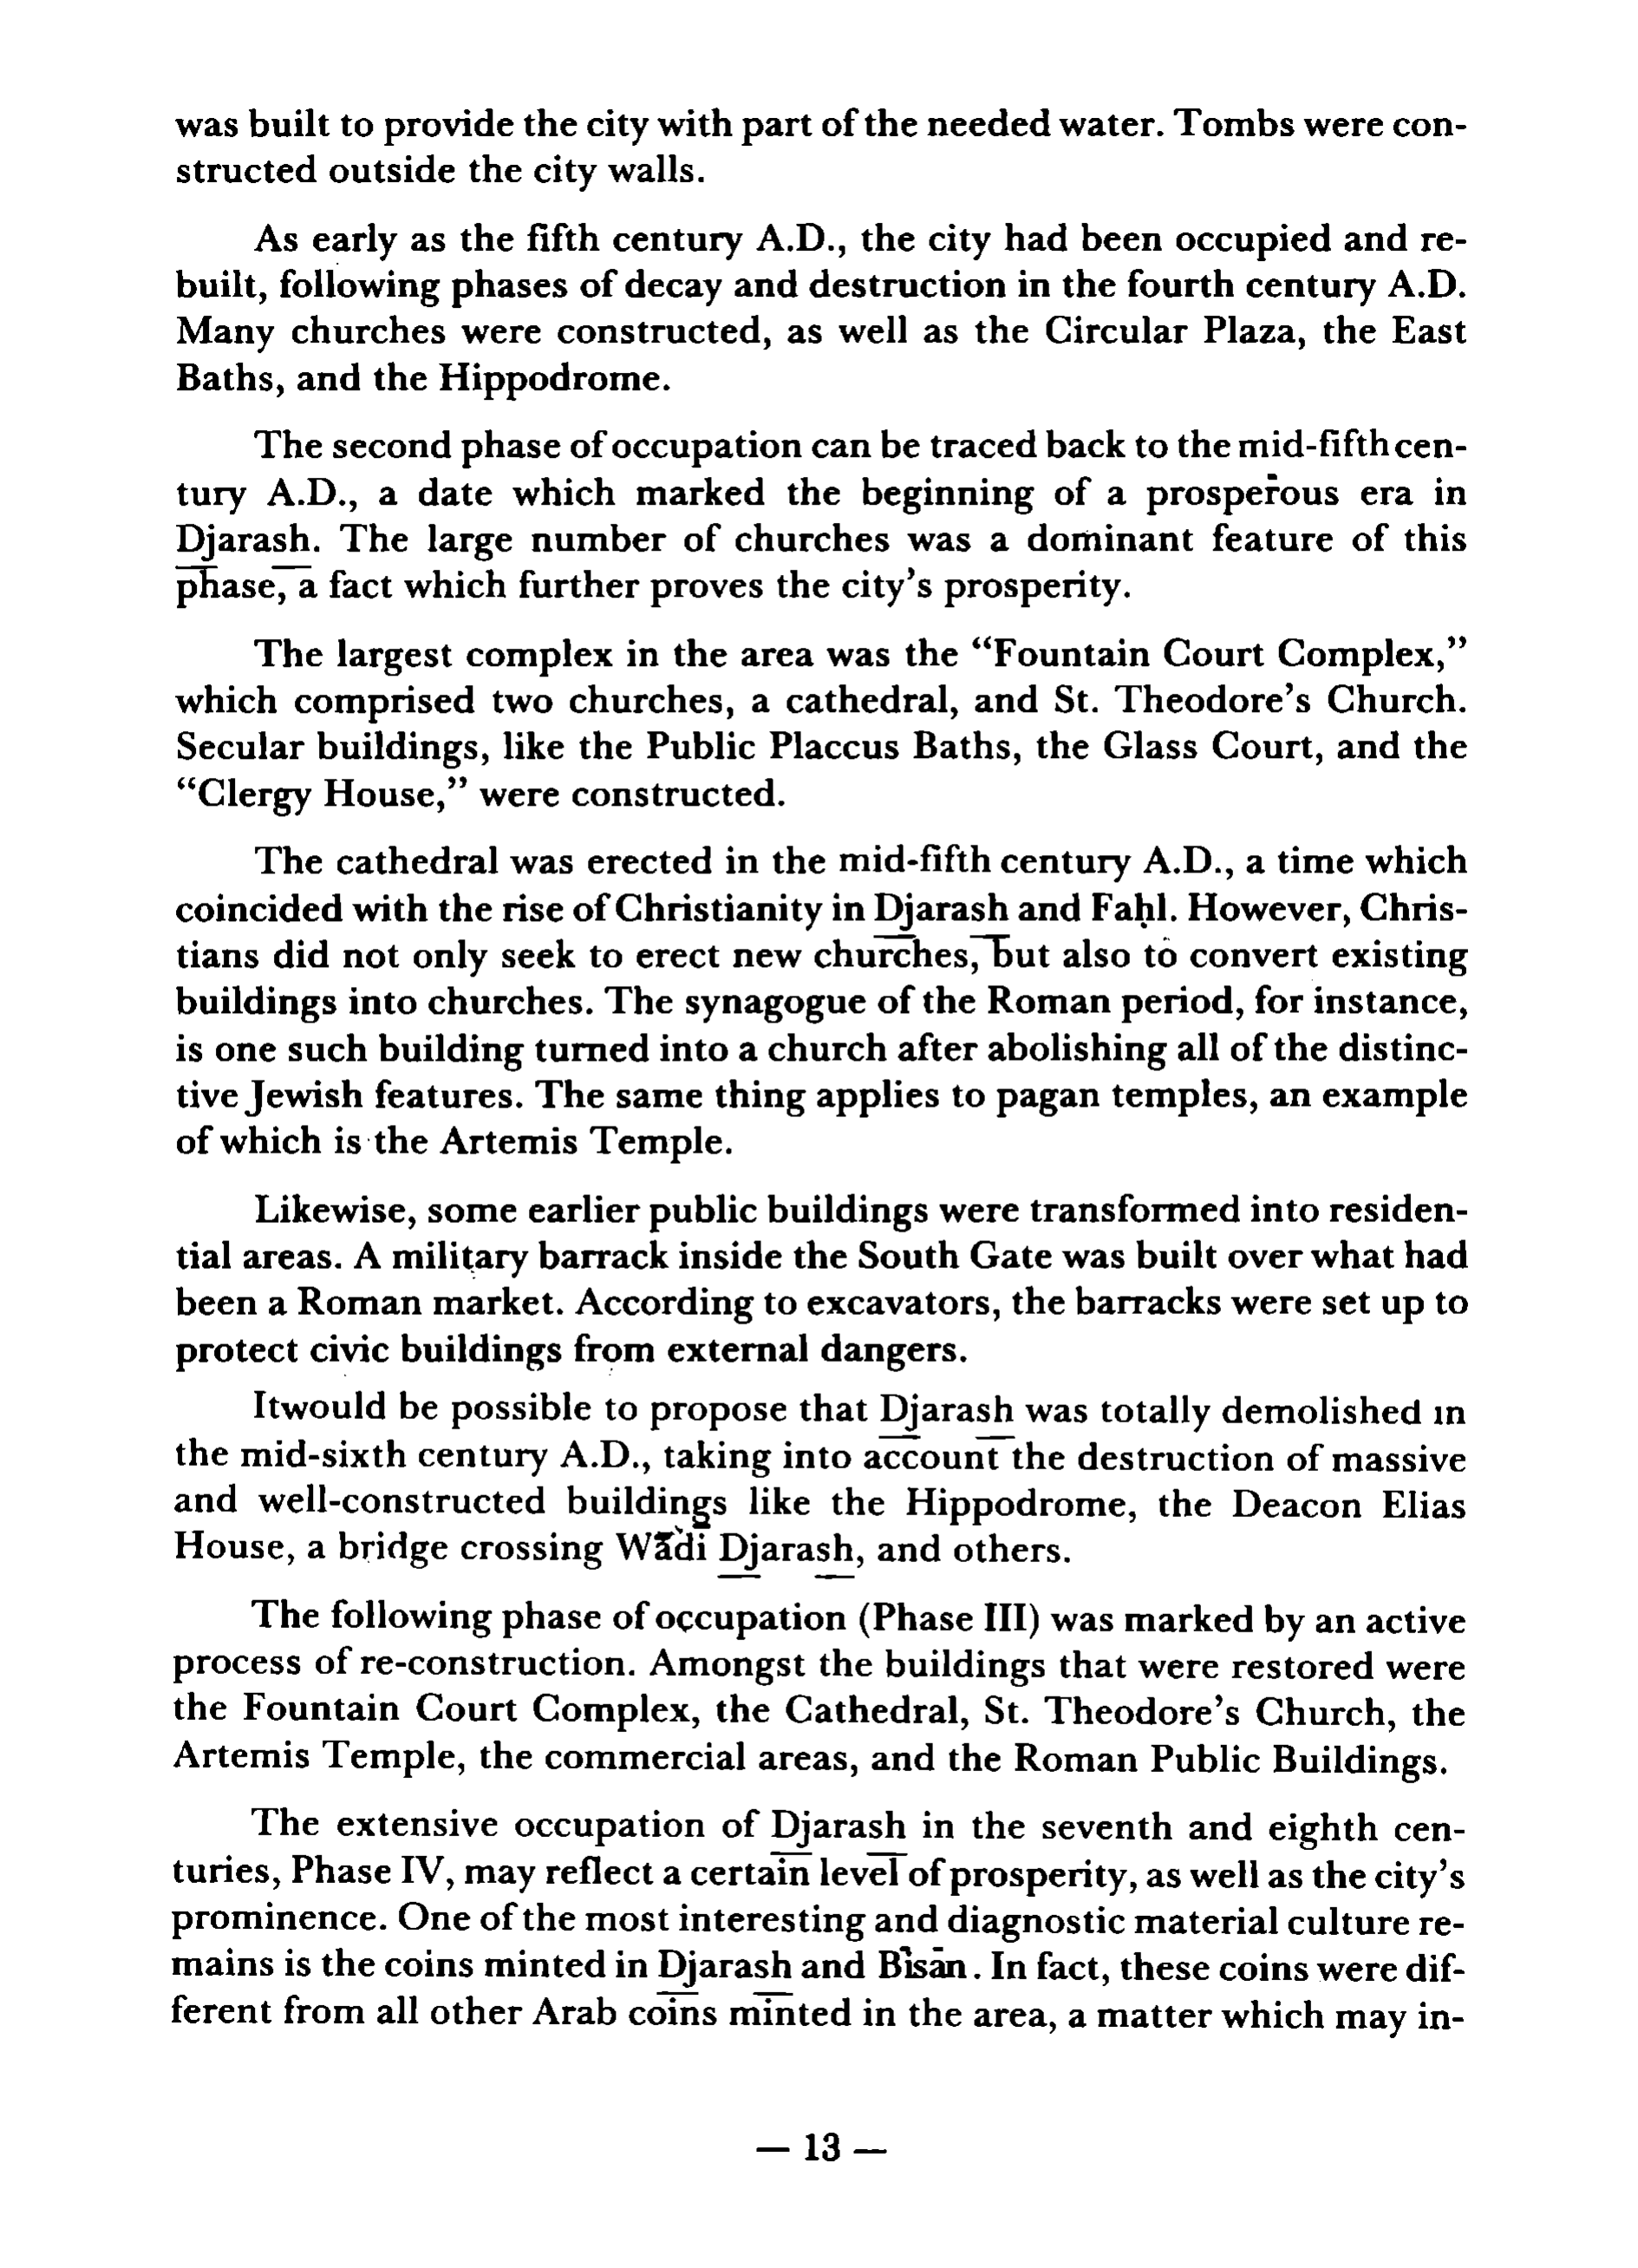 was built to provide the city with part of the needed water. Tombs were con-
structed outside the city walls.
As early as the fifth century A.D., the city had been occupied and re-
built, following phases of decay and destruction in the fourth century A.D.
Many churches were constructed, as well as the Circular Plaza, the East
Baths, and the Hippodrome.
The second phase of occupation can be traced back to the mid-fifth cen-
tury A.D., a date which marked the beginning of a prosperous era in
Djarash. The large number of churches was a dominant feature of this
phase, a fact which further proves the city's prosperity.
The largest complex in the area was the “Fountain Court Complex,”
which comprised two churches, a cathedral, and St. Theodore's Church.
Secular buildings, like the Public Placcus Baths, the Glass Court, and the
“Clergy House,” were constructed.
The cathedral was erected in the mid-fifth century A.D., a time which
coincided with the rise of Christianity in Djarash and Faḥl. However, Chris-
tians did not only seek to erect new churches, but also to convert existing
buildings into churches. The synagogue of the Roman period, for instance,
is one such building turned into a church after abolishing all of the distinc-
tive Jewish features. The same thing applies to pagan temples, an example
of which is the Artemis Temple.
Likewise, some earlier public buildings were transformed into residen-
tial areas. A military barrack inside the South Gate was built over what had
been a Roman market. According to excavators, the barracks were set up to
protect civic buildings from external dangers.
Itwould be possible to propose that Djarash was totally demolished in
the mid-sixth century A.D., taking into account the destruction of massive
and well-constructed buildings like the Hippodrome, the Deacon Elias
House, a bridge crossing Wādi Djarash, and others.
The following phase of occupation (Phase III) was marked by an active
process of re-construction. Amongst the buildings that were restored were
the Fountain Court Complex, the Cathedral, St. Theodore's Church, the
Artemis Temple, the commercial areas, and the Roman Public Buildings.
The extensive occupation of Djarash in the seventh and eighth cen-
turies, Phase IV, may reflect a certain level of prosperity, as well as the city's
prominence. One of the most interesting and diagnostic material culture re-
mains is the coins minted in Djarash and Bīsān. In fact, these coins were dif-
ferent from all other Arab coins minted in the area, a matter which may in-
— 13 —